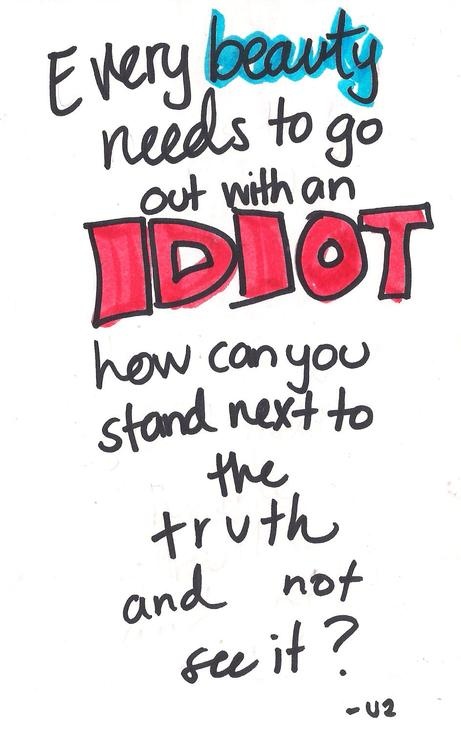 Every beauty
needs to go
out with an
IDIOT
how can you
stand next to
the
truth
and not
see it?
-U2